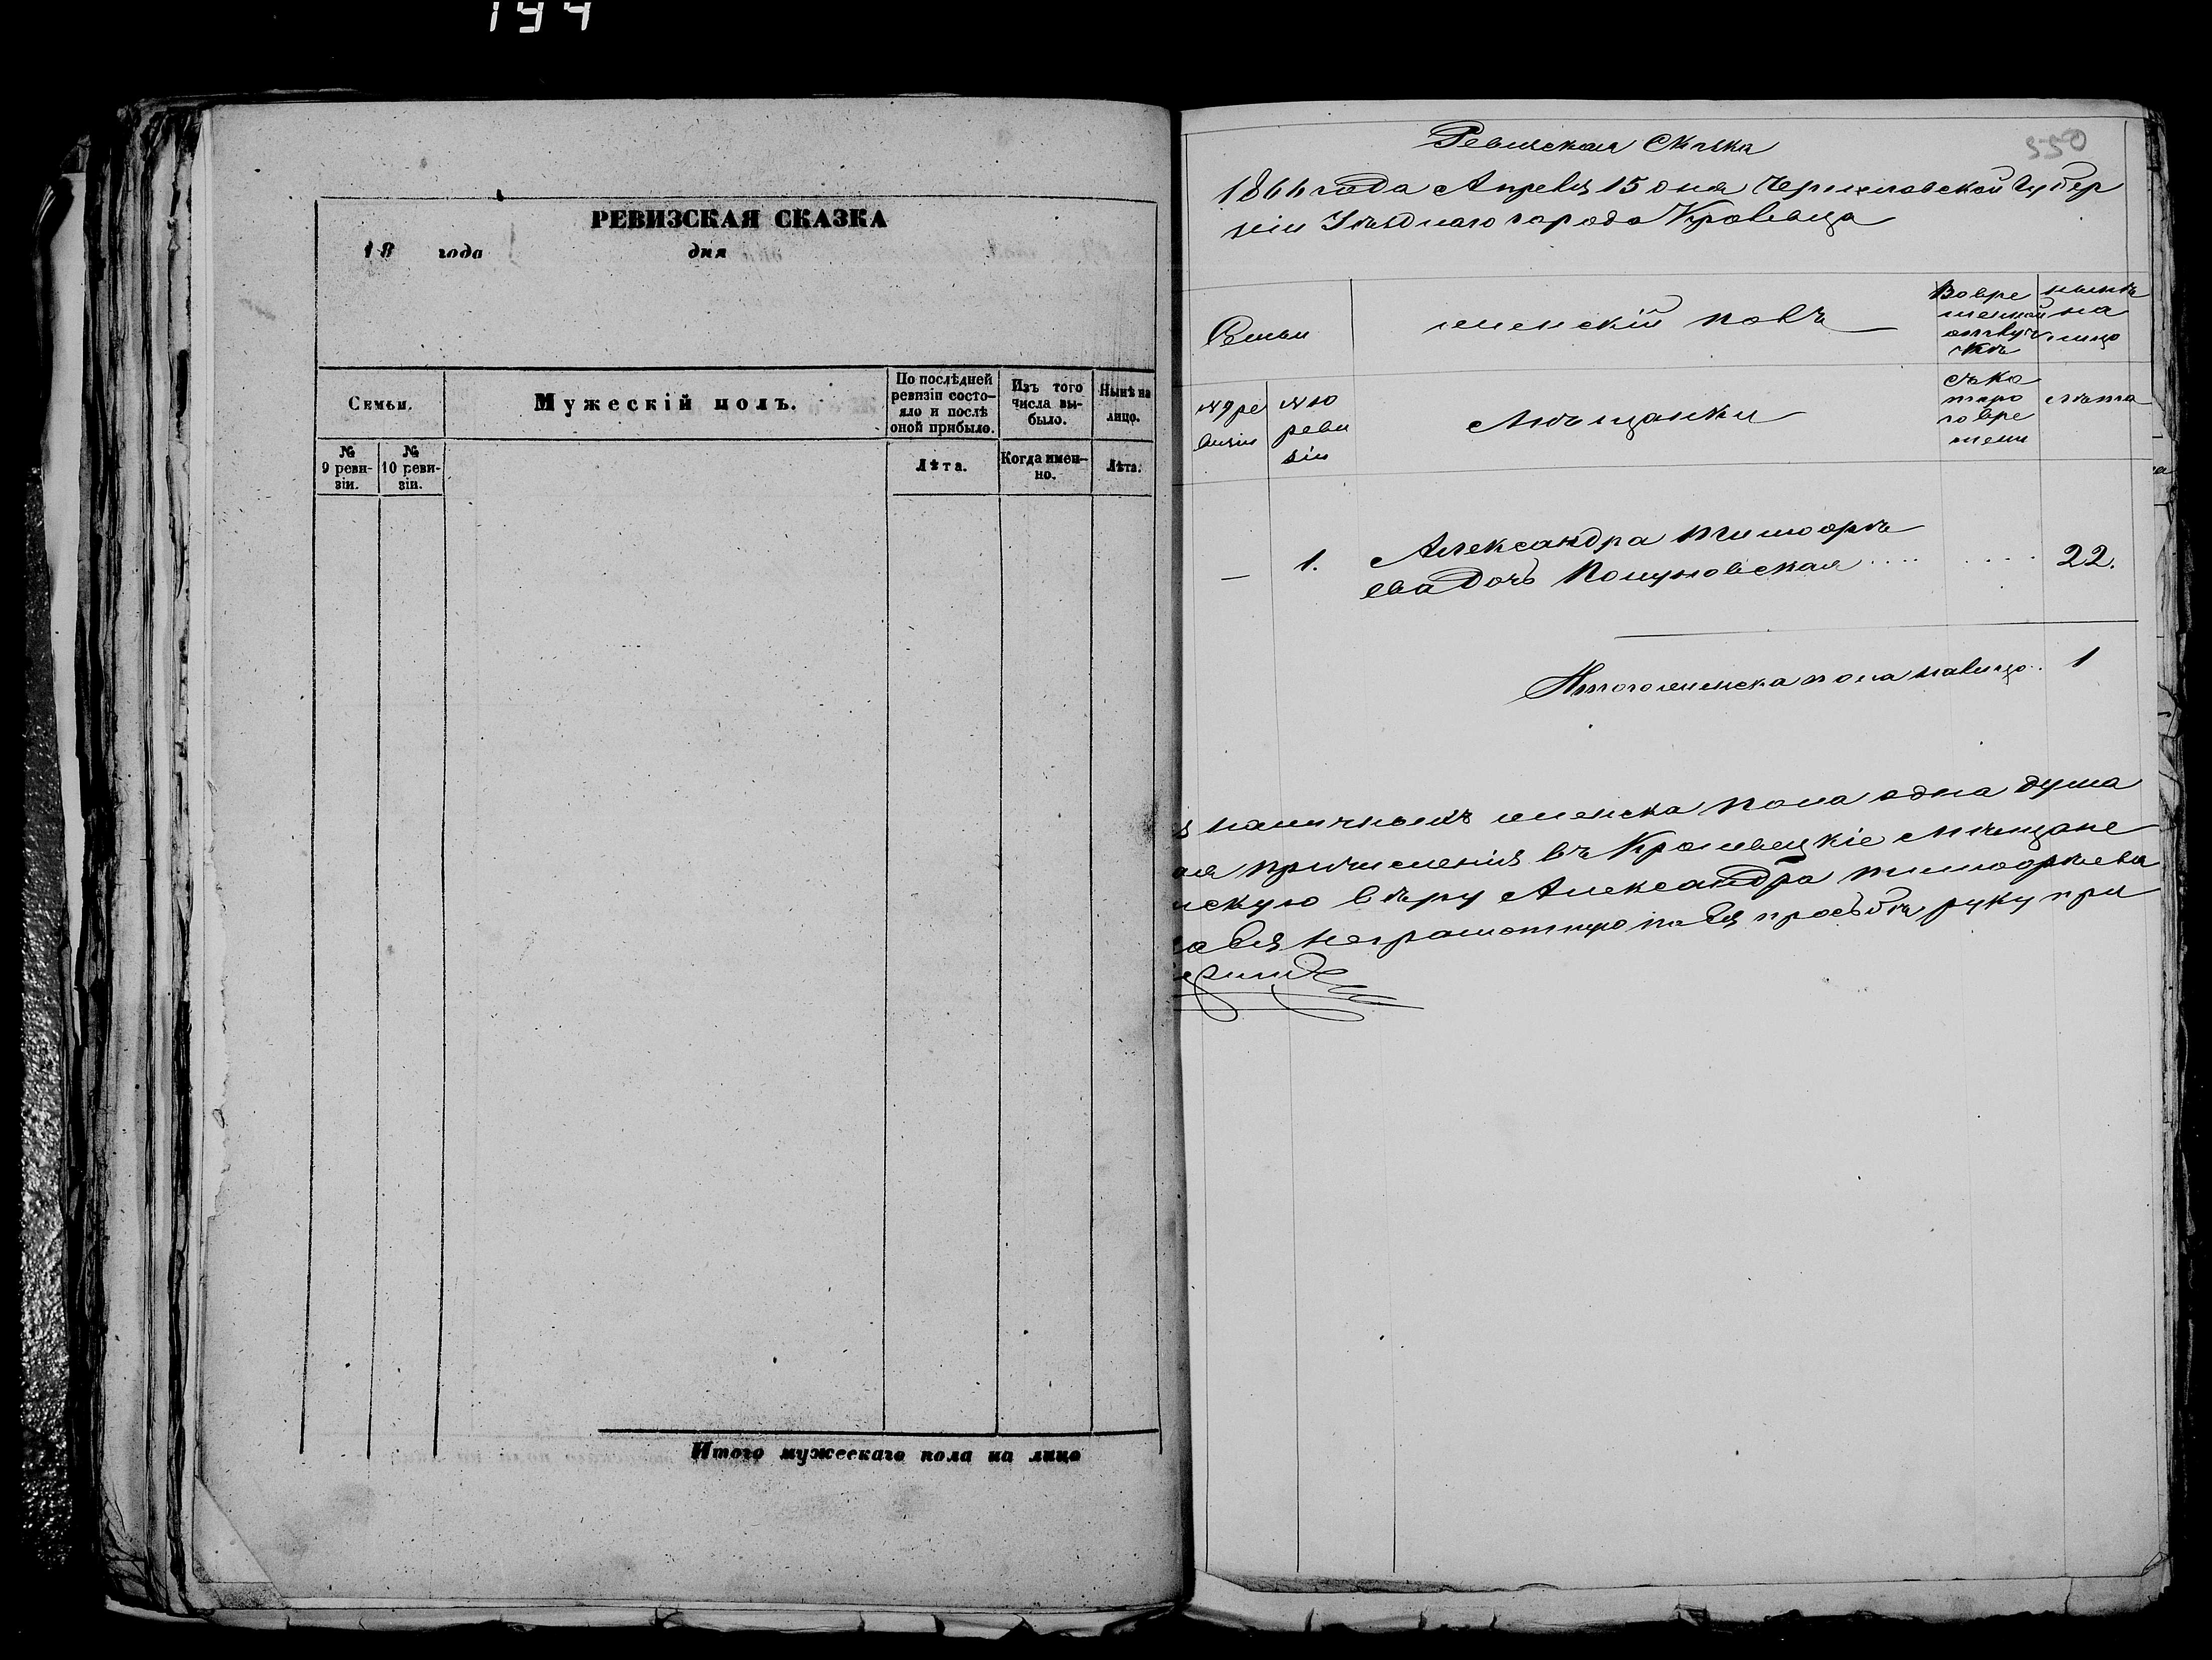 194
РЕВИЗСКАЯ СКАЗКА
18 года дня
Семьи.
Мужескій полъ.
По послѣдней
ревизіи состо-
яло и послѣ
оной прибыло.
Изъ того
числа вы-
было.
Нынѣ на
лицо.
№
9 реви-
зіи.
№
10 реви-
зіи.
Лѣта.
Когда имен-
но.
Лѣта.
Итого мужескаго пола на лицо
550
Ревизская Сказка
1866 года Апреля 15 дня Черниговской Губер
ніи Уѣзднаго города Кролевца
Семьи
женскій полъ
Во вре
менной
отлуч
кѣ
нынѣ
на
лицо
№ 9 ре
визіи
№ 10
реви
зіи
Мѣщанки
съ ко
торо
го вре
мени
лѣта
— 1. Александра Тимофѣ
ева дочь 22.
Итого женска пола налицо.. 1
наличныхъ женска пола одна душа
причисленія въ Кролевецкіе Мѣщане
вѣру Александра Тимофѣева
неграмотную по Ея прозьбѣ руку при